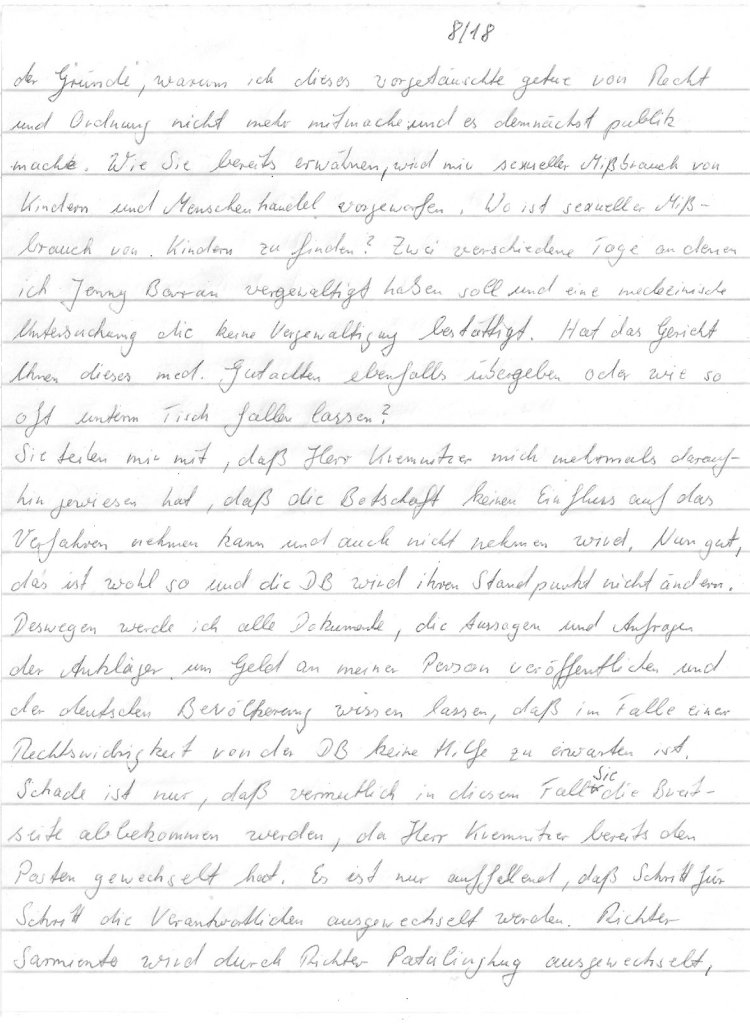 8/18
der Gründe, warum ich dieses vorgetäuschte getue von Recht
und Ordnung nicht mehr mitmache und es demnächst publik
mache. Wie Sie bereits erwähnen, wird mir sexueller Mißbrauch von
Kindern und Menschenhandel vorgeworfen. Wo ist sexueller Miß-
brauch von Kindern zu finden? Zwei verschiedene Tage an denen
ich Jenny Barran vergewaltigt haben soll und eine medizinische
Untersuchung die keine Vergewaltigung bestättigt. Hat das Gericht
Ihnen dieses med. Gutachten ebenfalls übergeben oder wie so
oft unterm Tisch fallen lassen?
Sie teilen mir mit, daß Herr Kremnitzer mich mehrmals darauf-
hin gewiesen hat, daß die Botschaft keinen Einfluss auf das
Verfahren nehmen kann und auch nicht nehmen wird. Nun gut,
das ist wohl so und die DB wird ihren Standpunkt nicht ändern.
Deswegen werde ich alle Dokumente, die Aussagen und Anfragen
der Ankläger um Geld an meiner Person veröffentlichen und
der deutschen Bevölkerung wissen lassen, daß im Falle einer
Rechtswidrigkeit von der DB keine Hilfe zu erwarten ist.
Schade ist nur, daß vermutlich in diesem Fall Sie die Breit-
seite abbekommen werden, da Herr Kremnitzer bereits den
Posten gewechselt hat. Es ist nur auffallend, daß Schritt für
Schritt die Verantwortlichen ausgewechselt werden. Richter
Sarmiento wird durch Richter Patalinghug ausgewechselt,